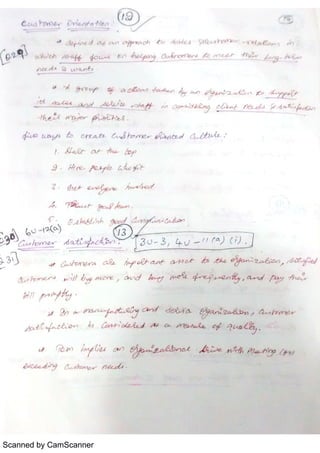 (12)
Customer Orientation.
[D29]
* defined as an approach to sales & customer-relations in
which staff focus on helping customers to meet their long-term
needs & wants
* A group of actions taken by an organization to support
its sales and service staff in considering client needs & satisfaction
their major priorities.
five ways to create Customer oriented Culture:
1. Start at the top
2. Hire people who fit
3. Get everyone involved
4. Trust your team.
5. Establish good Communication
6U-12(a)
(13)
30]
Customer satisfaction:
3U-3, 4U-11(a)(i).
31]
* Customers are important asset to the organization, satisfied
customers will buy more, and buy more frequently, and pay their
bill promptly.
* In a manufacturing and service organization, customer
satisfaction is considered as a measure of quality.
* TQM implies an organizational drive with meeting (or)
exceeding customer needs
Scanned by CamScanner